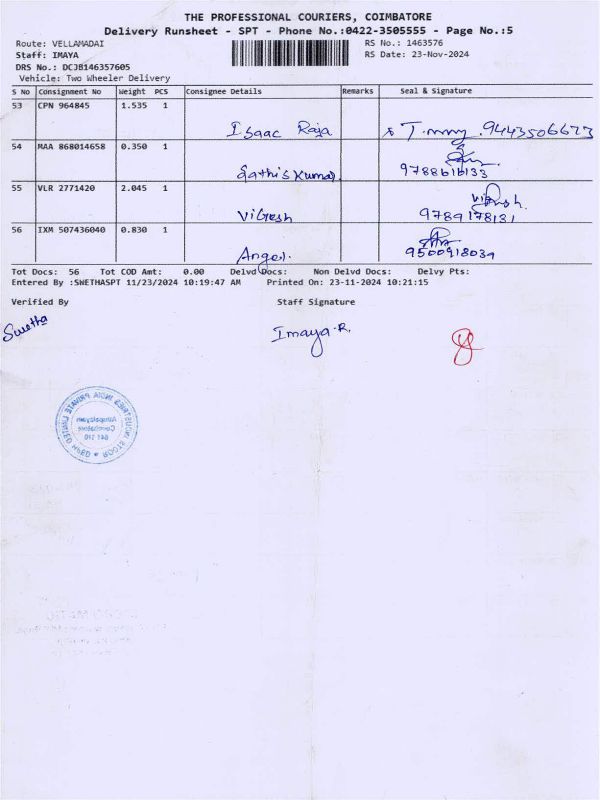 THE PROFESSIONAL COURIERS, COIMBATORE
Delivery Runsheet - SPT - Phone No.:0422-3505555 - Page No.:5
Route: VELLAMADAI RS No.: 1463576
Staff: IMAYA RS Date: 23-Nov-2024
DRS No.: DCJB146357605
Vehicle: Two Wheeler Delivery
S No Consignment No Weight PCS Consignee Details Remarks Seal & Signature
53 CPN 964845 1.535 1
Isaac Raja Timmy .9443506673
54 MAA 868014658 0.350 1
Sathis Kumar. 9788616133
55 VLR 2771420 2.045 1
Vigesh 9789178131
56 IXM 507436040 0.830 1
Angel. 9500918039
Tot Docs: 56 Tot COD Amt: 0.00 Delvd Docs: Non Delvd Docs: Delvy Pts:
Entered By :SNETHASPT 11/23/2024 10:19:47 AM Printed On: 23-11-2024 10:21:15
Verified By Staff Signature
Swetha Imaya.R.
ROOTS INDUSTRIES INDIA PRIVATE LIMITED
Coimbatore
641 110